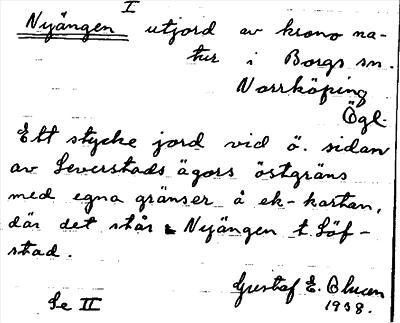 I
Nyängen utjord av krono na-
tur i Borgs sn.
Norrköping
Ögl.
Ett stycke jord vid ö. sidan
av Leverstads ägors östgräns
med egna gränser å ek-kartan,
där det står Nyängen t Löf-
stad.
Gustaf E. Blucen
1938.
Se II